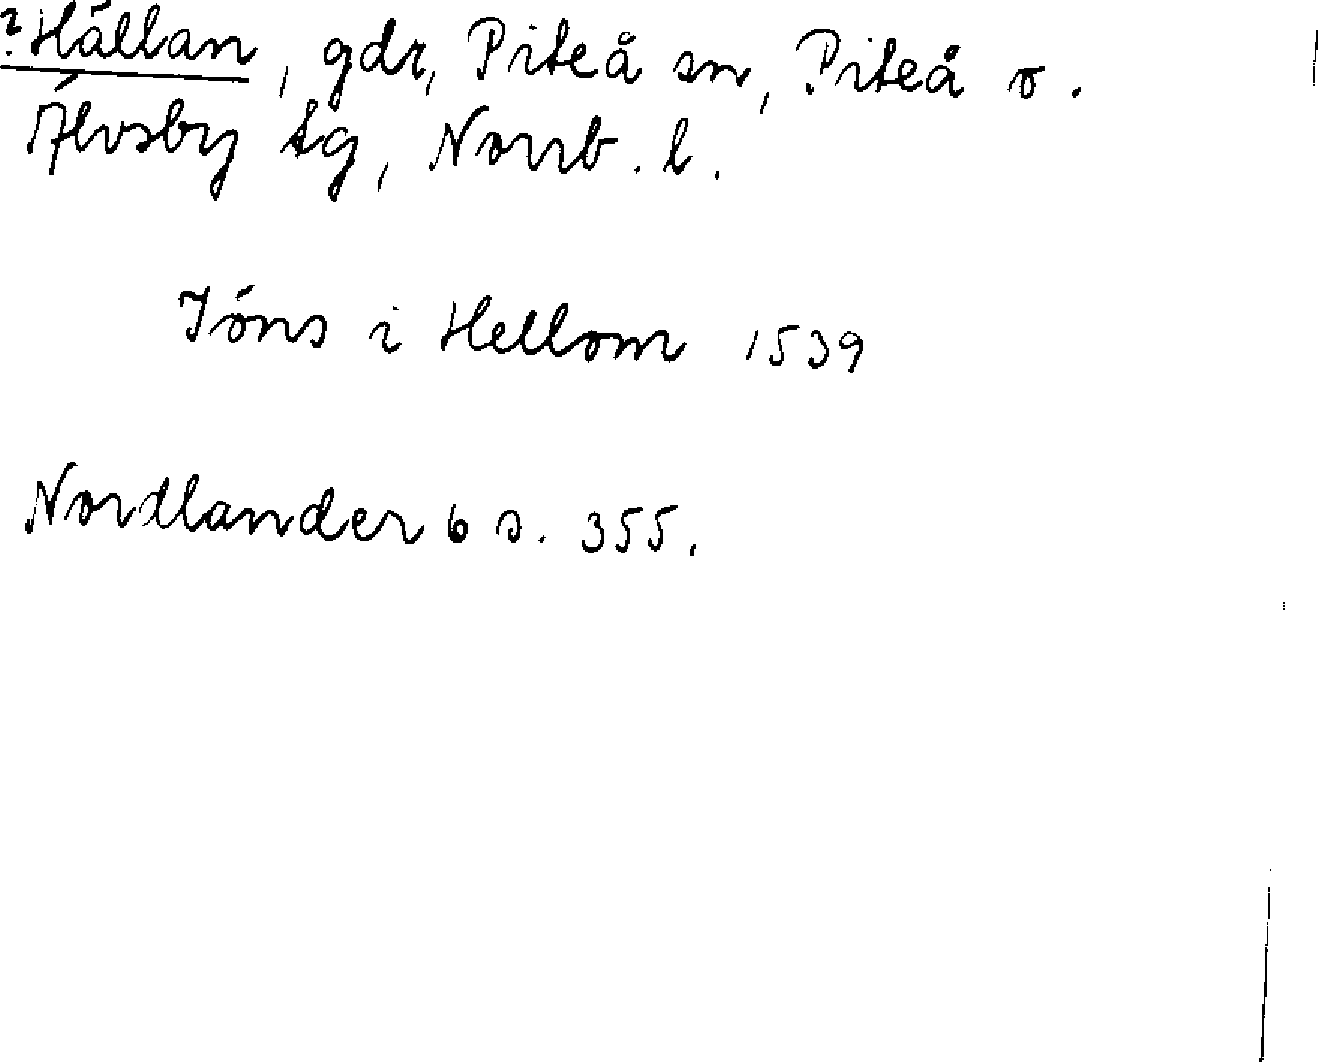 ?Hällan, gdr, Piteå sn, Piteå o.
Älvsby tg, Norrb. l.
Jöns i Hellom 1539
Nordlander 6 s. 355.